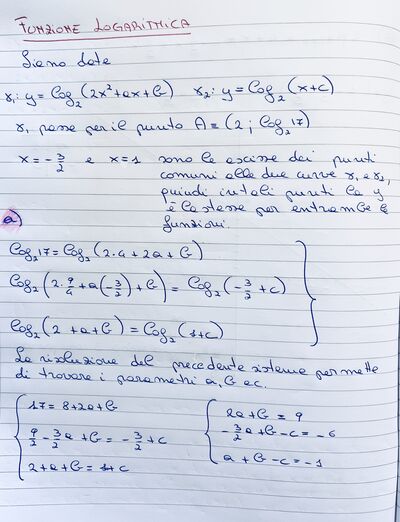 FUNZIONE LOGARITMICA
Siano date
γ₁: y = log₂(2x²+ax+b)   γ₂: y = log₂(x+c)
γ₁ passa per il punto A ≡ (2; log₂17)
x = -3/2 e x = 1 sono le ascisse dei punti
comuni alle due curve γ₁ e γ₂,
quindi in tali punti la y
è la stessa per entrambe le
funzioni.
a)
log₂17 = log₂(2·4+2a+b)
log₂(2·9/4+a(-3/2)+b) = log₂(-3/2+c)
log₂(2+a+b) = log₂(1+c)
La risoluzione del precedente sistema permette
di trovare i parametri a, b e c.
17 = 8+2a+b   2a+b = 9
9/2-3/2a+b = -3/2+c   -3/2a+b-c = -6
2+a+b = 1+c   a+b-c = -1